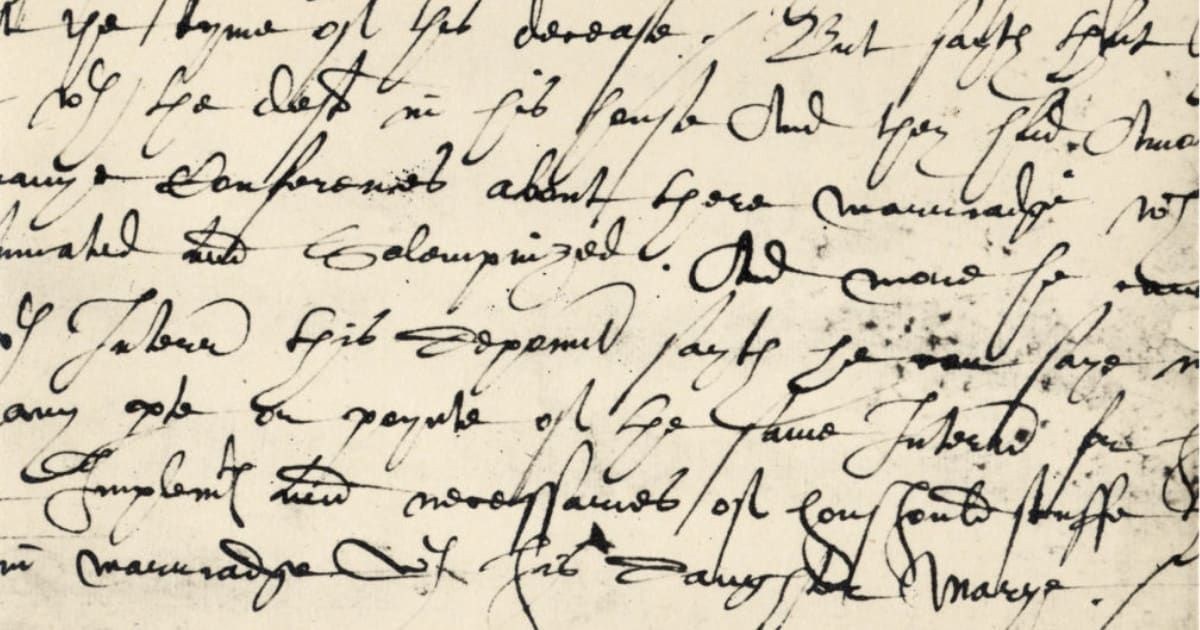 the tyme of his decease . But sayth that
wth the deft in his house And they had Amo
manye Conferences about there marriadge wch
mated and Solempnized . And more he cann
Interr this deponnt sayth he can saye n
any pte or poynte of the same Interr for
Implemts and necessaries of houshould stuffe
in marriadge wth his daughter Marye .